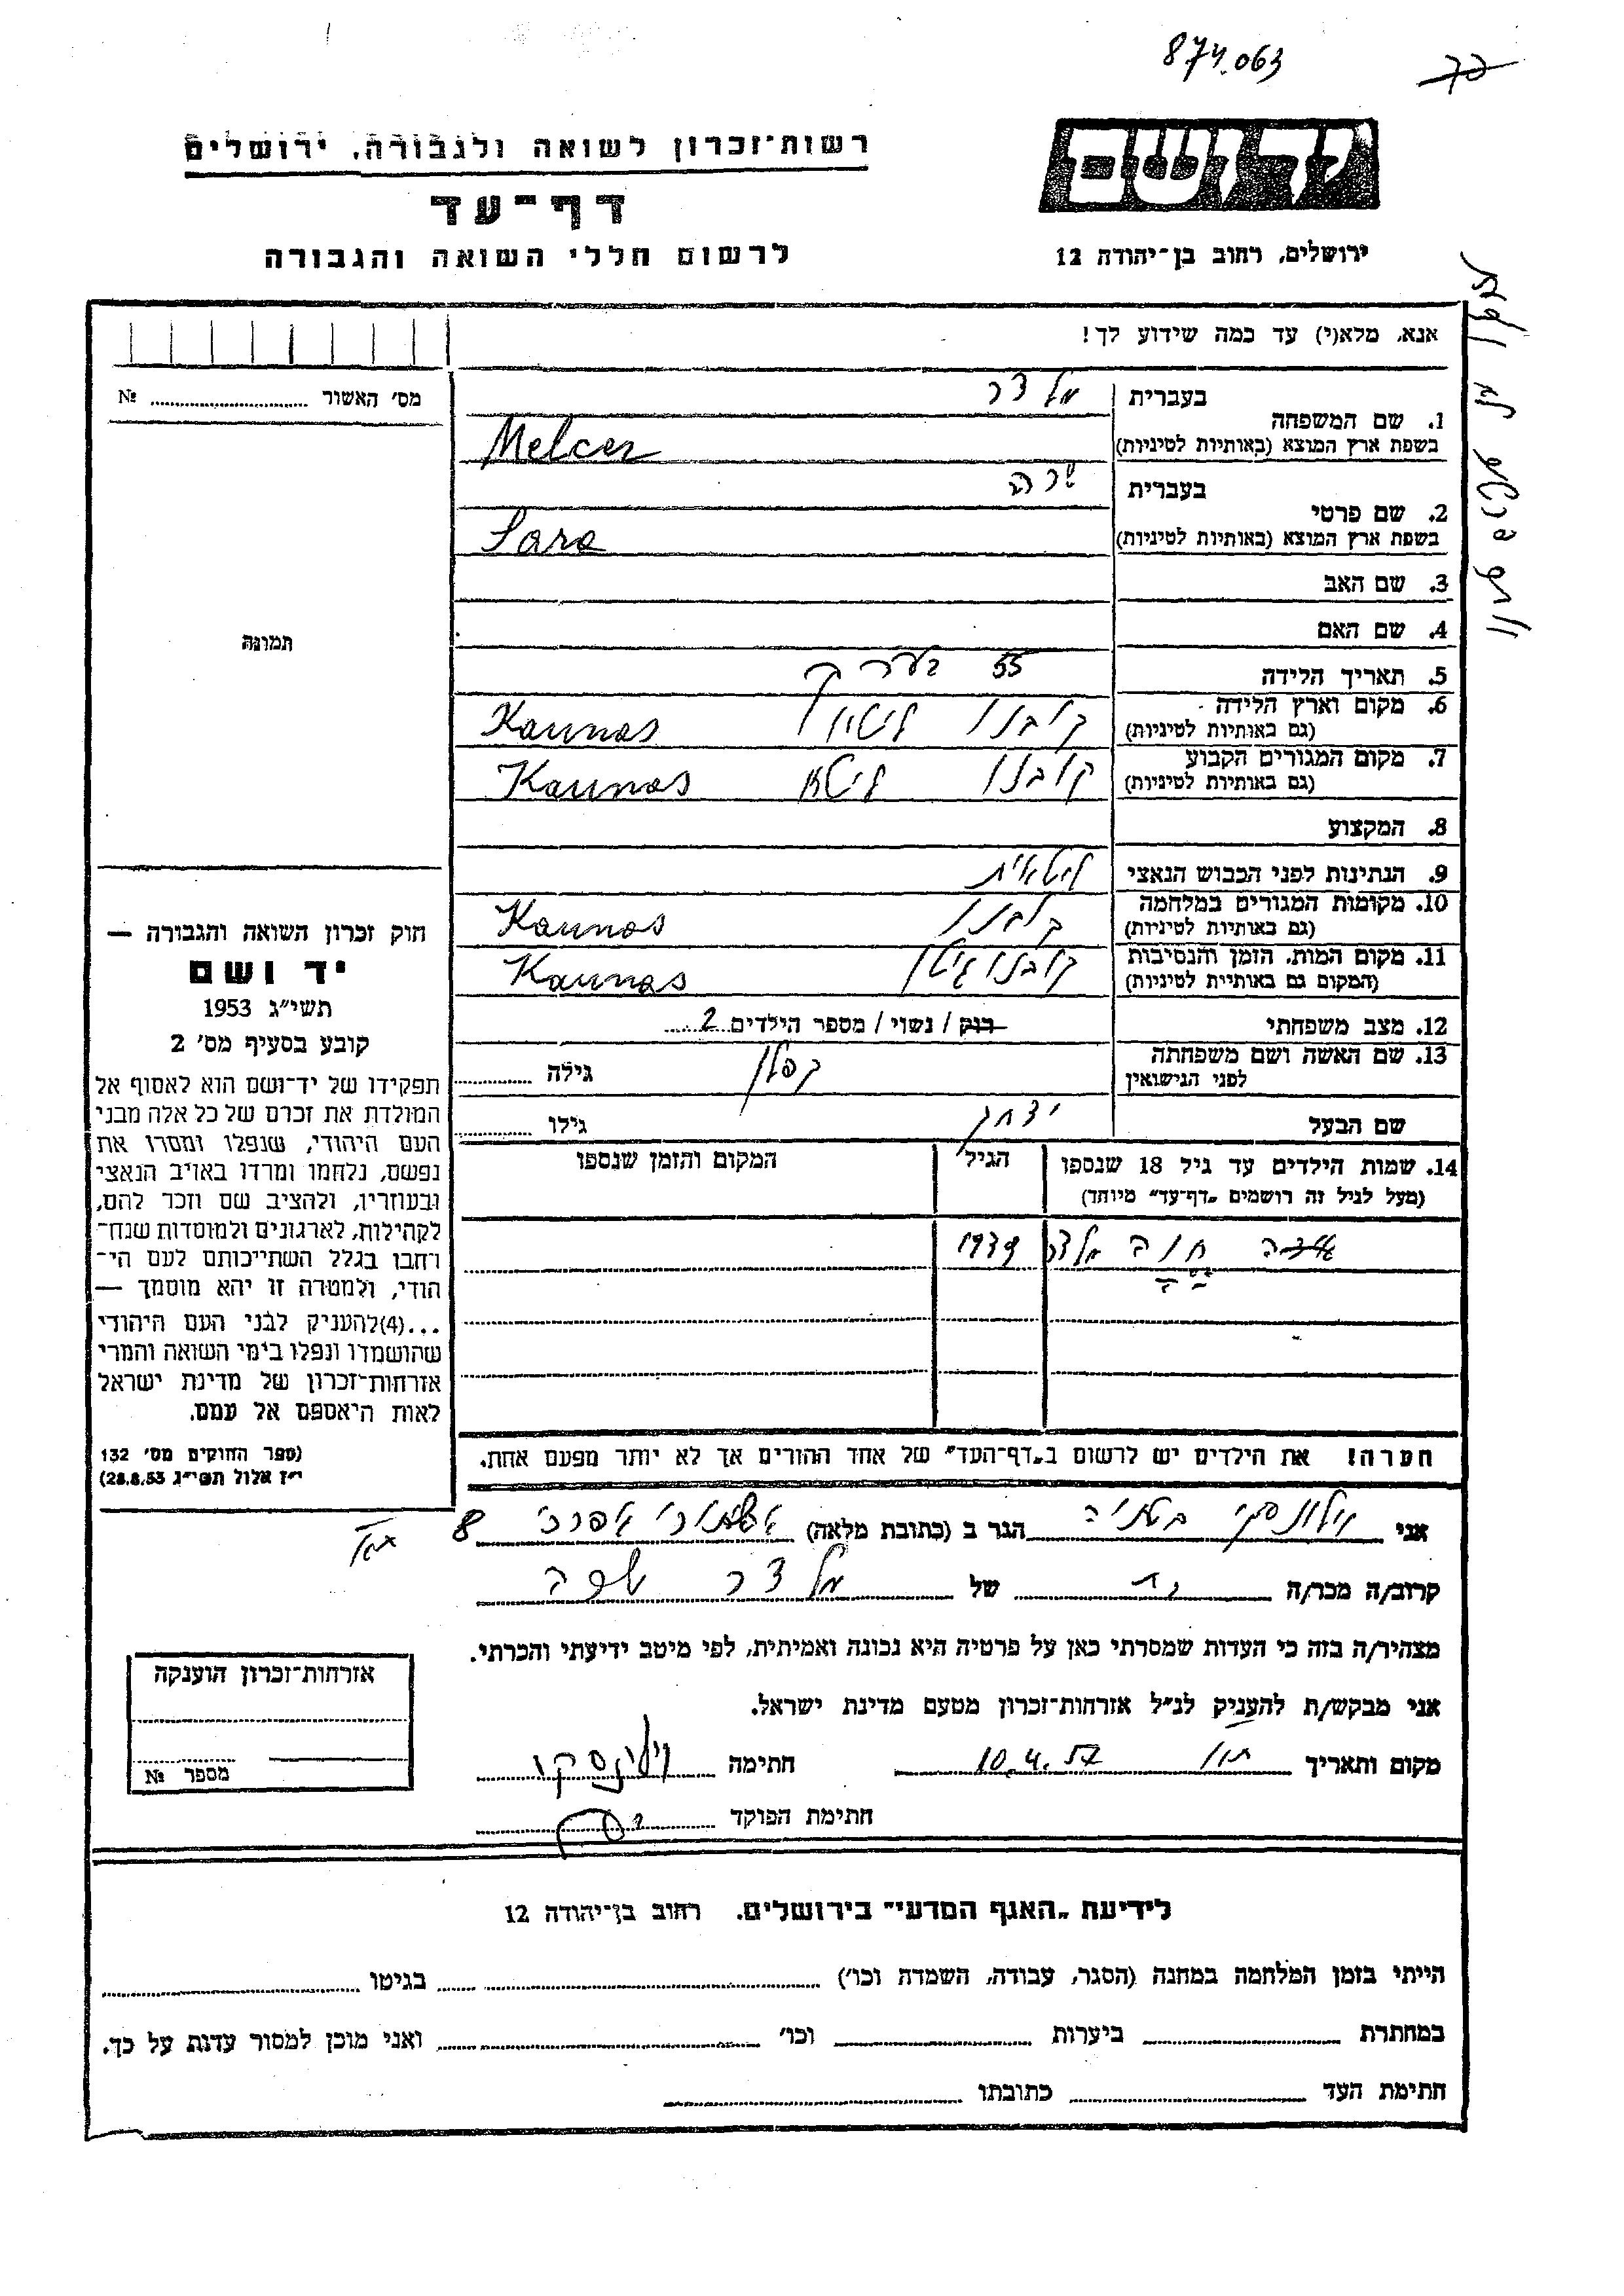 874.063
70
רשות־זכרון לשואה ולגבורה, ירושלים
דף־עד
לרשום חללי השואה והגבורה
ידושם
ירושלים, רחוב בן־יהודה 12
אנא, מלא(י) עד כמה שידוע לך!
מס׳ האשור № 
1. שם המשפחה
בעברית מלצר
בשפת ארץ המוצא (באותיות לטיניות) Melcer
2. שם פרטי
בעברית שרה
בשפת ארץ המוצא (באותיות לטיניות) Sara
3. שם האב
4. שם האם
תמונה
5. תאריך הלידה 55 בערך
6. מקום וארץ הלידה קובנו ליטא Kaunas
(גם באותיות לטיניות)
7. מקום המגורים הקבוע קובנו ליטא Kaunas
(גם באותיות לטיניות)
8. המקצוע
9. הנתינות לפני הכבוש הנאצי ליטאית
10. מקומות המגורים במלחמה קובנו Kaunas
(גם באותיות לטיניות)
11. מקום המות, הזמן והנסיבות קובנו גיטו Kaunas
(המקום גם באותיית לטיניות)
12. מצב משפחתי רוק / נשוי / מספר הילדים 2
13. שם האשה ושם משפחתה קפלן גילה
לפני הנישואין
שם הבעל יצחק גילו
14. שמות הילדים עד גיל 18 שנספו הגיל המקום והזמן שנספו
(מעל לגיל זה רושמים „דף־עד״ מיוחד)
חוה מלצר 1939
הערה! את הילדים יש לרשום ב„דף־העד״ של אחד ההורים אך לא יותר מפעם אחת.
חוק זכרון השואה והגבורה —
יד ושם
תשי״ג 1953
קובע בסעיף מס׳ 2
תפקידו של יד־ושם הוא לאסוף אל
המולדת את זכרם של כל אלה מבני
העם היהודי, שנפלו ומסרו את
נפשם, נלחמו ומרדו באויב הנאצי
ובעוזריו, ולהציב שם וזכר להם,
לקהילות, לארגונים ולמוסדות שנח־
רחבו בגלל השתייכותם לעם הי־
הודי, ולמטרה זו יהא מוסמך —
...(4)להעניק לבני העם היהודי
שהושמדו ונפלו בימי השואה והמרי
אזרחות־זכרון של מדינת ישראל
לאות היאספם אל עמם.
(ספר החוקים מס׳ 132
י״ז אלול תשי״ג 28.8.53)
אני וילונסקי הגר ב (כתובת מלאה) 8
קרוב/ה מכר/ה בת של מלצר שרה
מצהיר/ה בזה כי העדות שמסרתי כאן על פרטיה היא נכונה ואמיתית, לפי מיטב ידיעתי והכרתי.
אני מבקש/ת להעניק לנ״ל אזרחות־זכרון מטעם מדינת ישראל.
מקום ותאריך 10.4.57 חתימה
חתימת הפוקד
אזרחות־זכרון הוענקה
מספר №
לידיעת „האגף המדעי״ בירושלים, רחוב בן־יהודה 12
הייתי בזמן המלחמה במחנה (הסגר, עבודה, השמדה וכו׳) בגיטו
במחתרת ביערות וכו׳ ואני מוכן למסור עדות על כך.
חתימת העד כתובתו